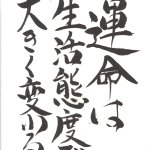 運命は
生活態度で
大きく変わる